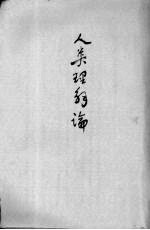 人类理解论